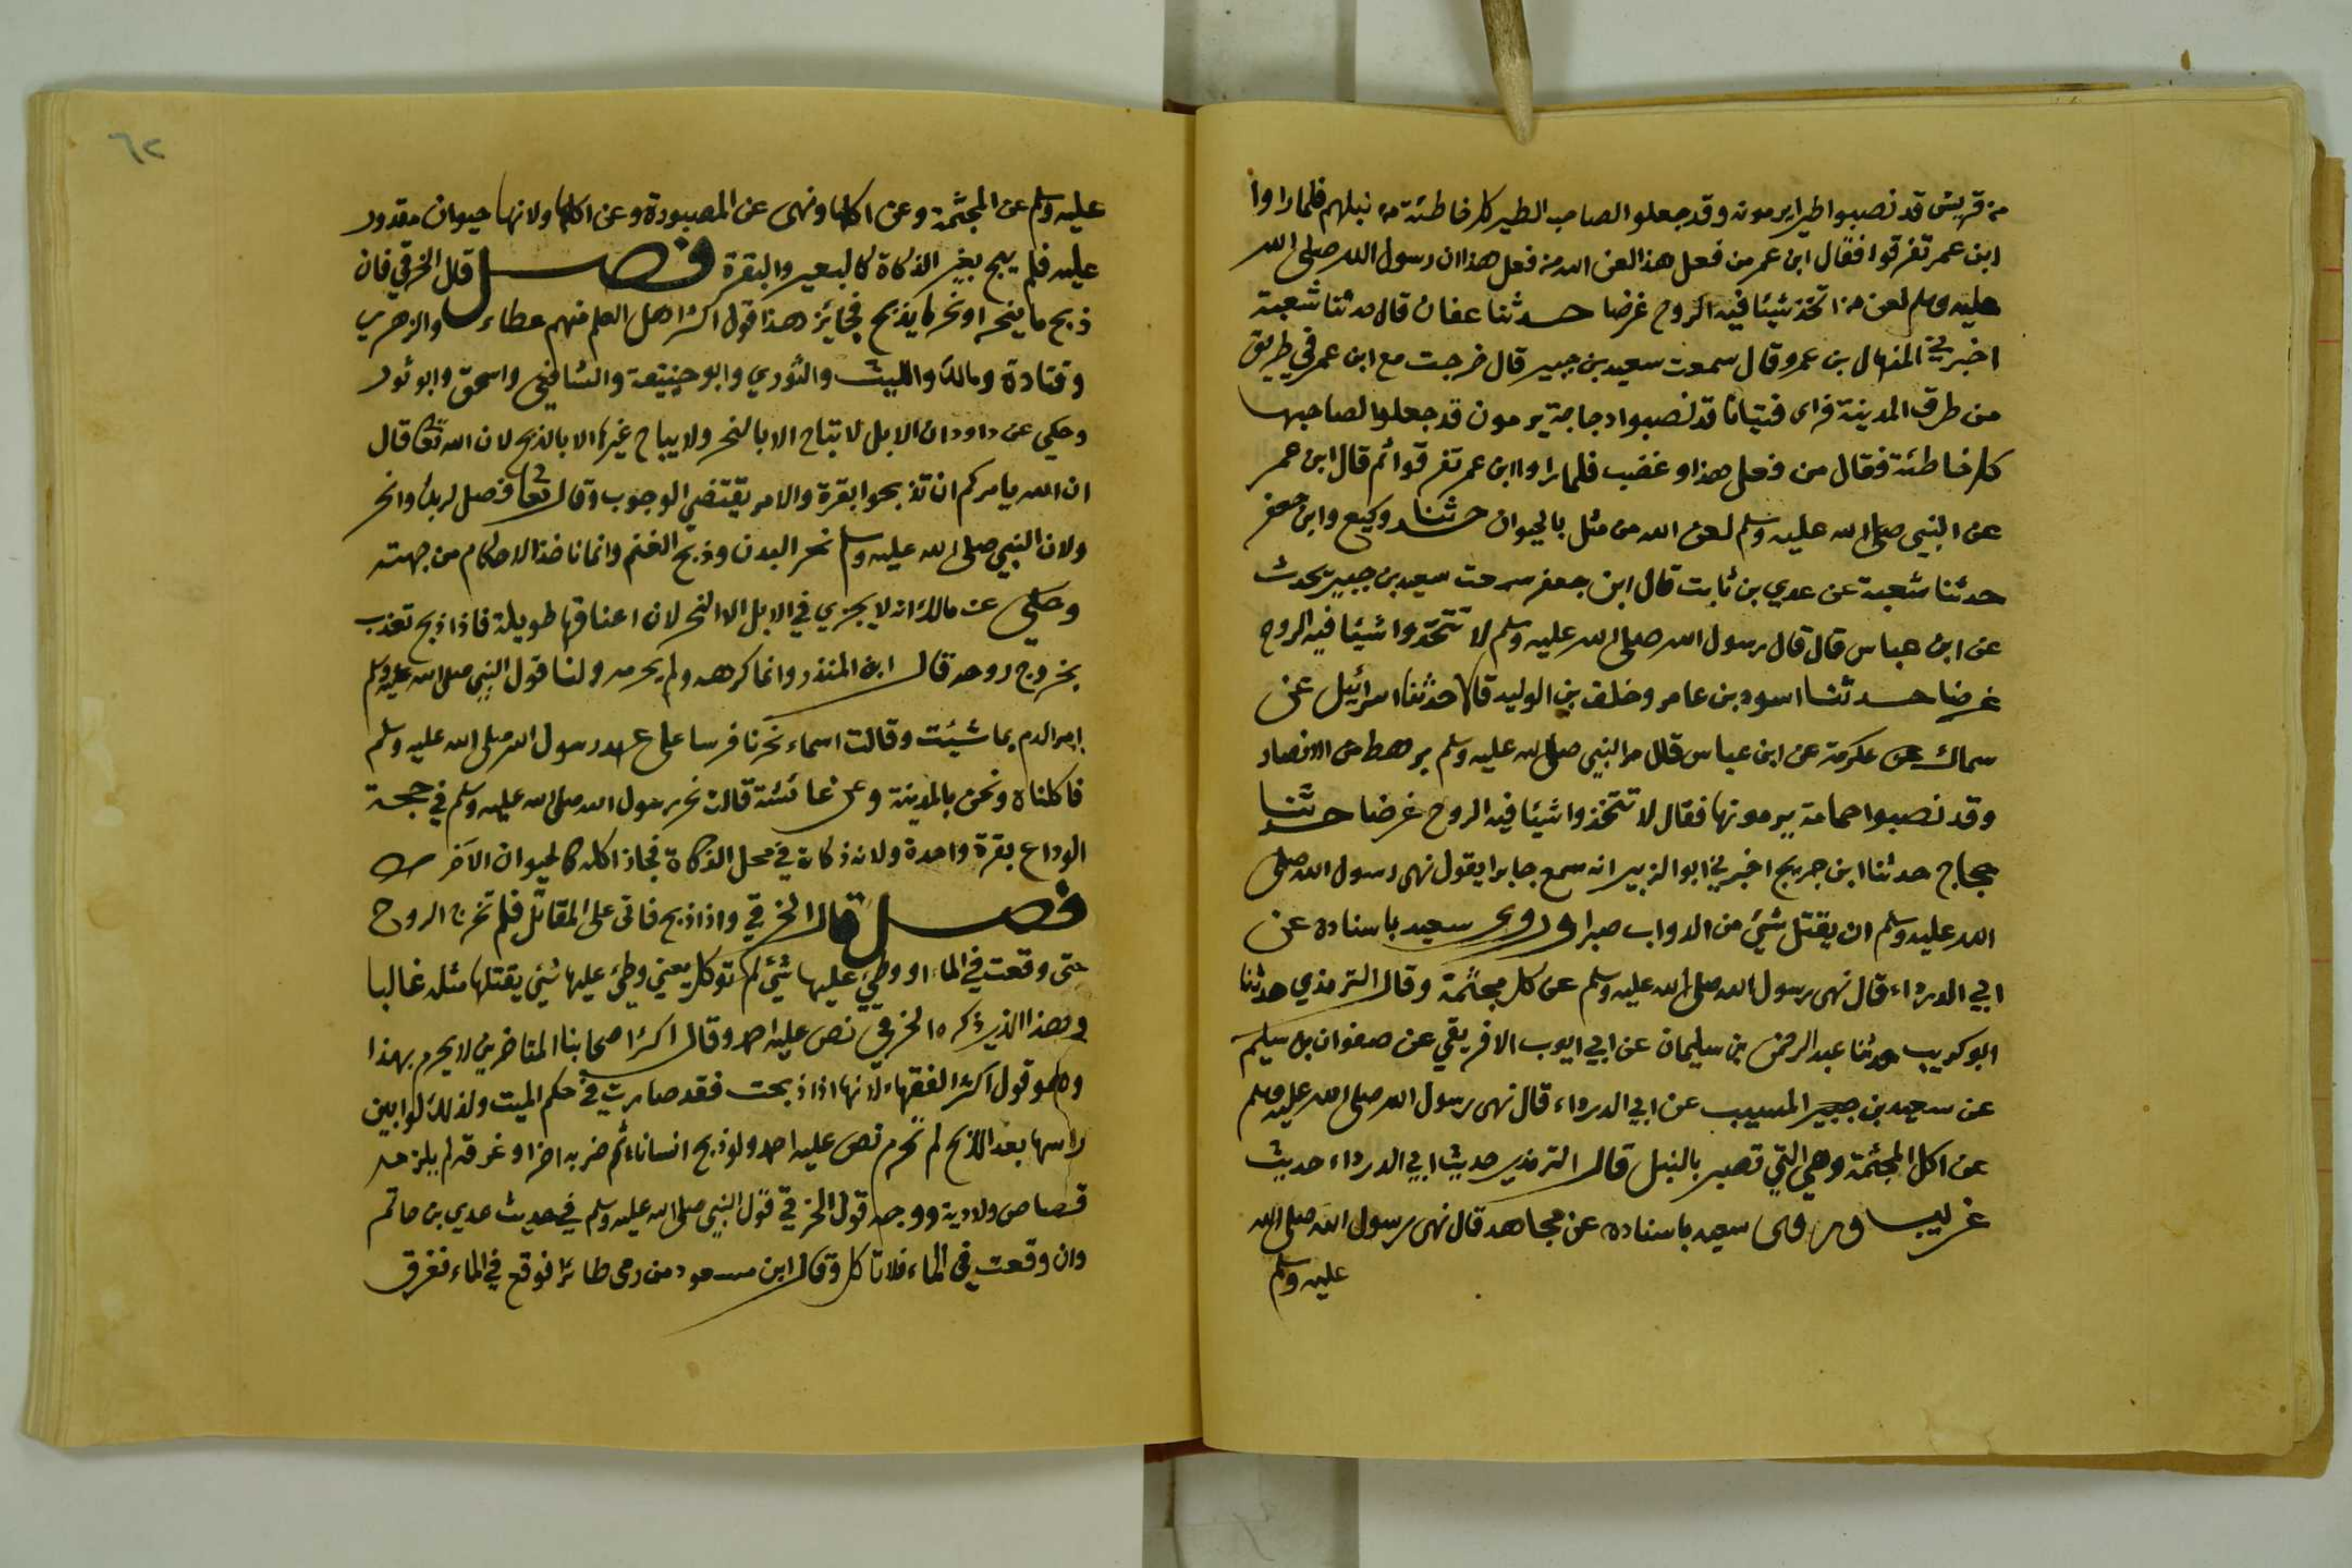 من قريش قد نصبوا طيرا يرمونه وقد جعلوا لصاحب الطير كل خاطئة من نبلهم فلما راوا
ابن عمر تفرقوا فقال ابن عمر من فعل هذا لعن الله من فعل هذا ان رسول الله صلى الله
عليه وسلم لعن من اتخذ شيئا فيه الروح غرضا حدثنا عفان قال حدثنا شعبة
اخبرني المنهال بن عمرو قال سمعت سعيد بن جبير قال خرجت مع ابن عمر في طريق
من طرق المدينة فراى فتيانا قد نصبوا دجاجة يرمون قد جعلوا لصاحبها
كل خاطئة فقال من فعل هذا وغضب فلما راوا ابن عمر تفرقوا ثم قال ابن عمر
عن النبي صلى الله عليه وسلم لعن الله من مثل بالحيوان حدثنا وكيع وابن جعفر
حدثنا شعبة عن عدي بن ثابت قال ابن جعفر سمعت سعيد بن جبير يحدث
عن ابن عباس قال قال رسول الله صلى الله عليه وسلم لا تتخذوا شيئا فيه الروح
غرضا حدثنا اسود بن عامر وخلف بن الوليد قالا حدثنا اسرائيل عن
سماك عن عكرمة عن ابن عباس قال مر النبي صلى الله عليه وسلم برهط من الانصار
وقد نصبوا حمامة يرمونها فقال لا تتخذوا شيئا فيه الروح غرضا حدثنا
حجاج حدثنا ابن جريج اخبرني ابو الزبير انه سمع جابرا يقول نهى رسول الله صلى
الله عليه وسلم ان يقتل شيئ من الدواب صبرا وروى سعيد باسناده عن
ابي الدرداء قال نهى رسول الله صلى الله عليه وسلم عن كل مجثمة وقال الترمذي حدثنا
ابو كريب حدثنا عبد الرحمن بن سليمان عن ابي ايوب الافريقي عن صفوان بن سليم
عن سعيد بن جبير المسيب عن ابي الدرداء قال نهى رسول الله صلى الله عليه وسلم
عن اكل المجثمة وهي التي تصبر بالنبل قال الترمذي حديث ابي الدرداء حديث
غريب وروى سعيد باسناده عن مجاهد قال نهى رسول الله صلى الله
عليه وسلم
٦٢
عليه وسلم عن المجثمة وعن اكلها ونهى عن المصبورة وعن اكلها ولانها حيوان مقدور
عليه فلم يبح بغير الذكاة كالبعير والبقرة فصل قال الخرقي فان
ذبح ما ينحر او نحر ما يذبح فجائز هذا قول اكثر اهل العلم منهم عطاء والزهري
وقتادة ومالك والليث والثوري وابو حنيفة والشافعي واسحق وابو ثور
وحكي عن داود ان الابل لا تباح الا بالنحر ولا يباح غيرها الا بالذبح لان الله تعا قال
ان الله يامركم ان تذبحوا بقرة والامر يقتضي الوجوب وقال تعا فصل لربك وانحر
ولان النبي صلى الله عليه وسلم نحر البدن وذبح الغنم وانما ناخذ الاحكام من جهته
وحكي عن مالك انه لا يجزي في الابل الا النحر لان اعناقها طويلة فاذا ذبح تعذب
بخروج روحه قال ابن المنذر وانما كرهه ولم يحرمه ولنا قول النبي صلى الله عليه وسلم
امر الدم بما شيئت وقالت اسماء نحرنا فرسا على عهد رسول الله صلى الله عليه وسلم
فاكلناه ونحن بالمدينة وعن عائشة قالت نحر رسول الله صلى الله عليه وسلم في حجة
الوداع بقرة واحدة ولانه ذكاة في محل الذكاة فجاز اكله كالحيوان الآخر
فصل قال الخرقي واذا ذبح فاتى على المقاتل فلم تخرج الروح
حتى وقعت في الماء او وطئ عليها شيئ لم توكل يعني وطئ عليها شيئ يقتلها مثله غالبا
وهذا الذي ذكره الخرقي نص عليه احمد وقال اكثر اصحابنا المتاخرين لا يحرم بهذا
وهو قول اكثر الفقهاء لانها اذا ذبحت فقد صارت في حكم الميت ولذلك لو ابين
راسها بعد الذبح لم تحرم نص عليه احمد ولو ذبح انسانا ثم ضربه اخر او غرقه لم يلزمه
قصاص ولا دية ووجه قول الخرقي قول النبي صلى الله عليه وسلم في حديث عدي بن حاتم
وان وقعت في الماء فلا تاكل وقال ابن مسعود من رمى طائرا فوقع في الماء فغرق